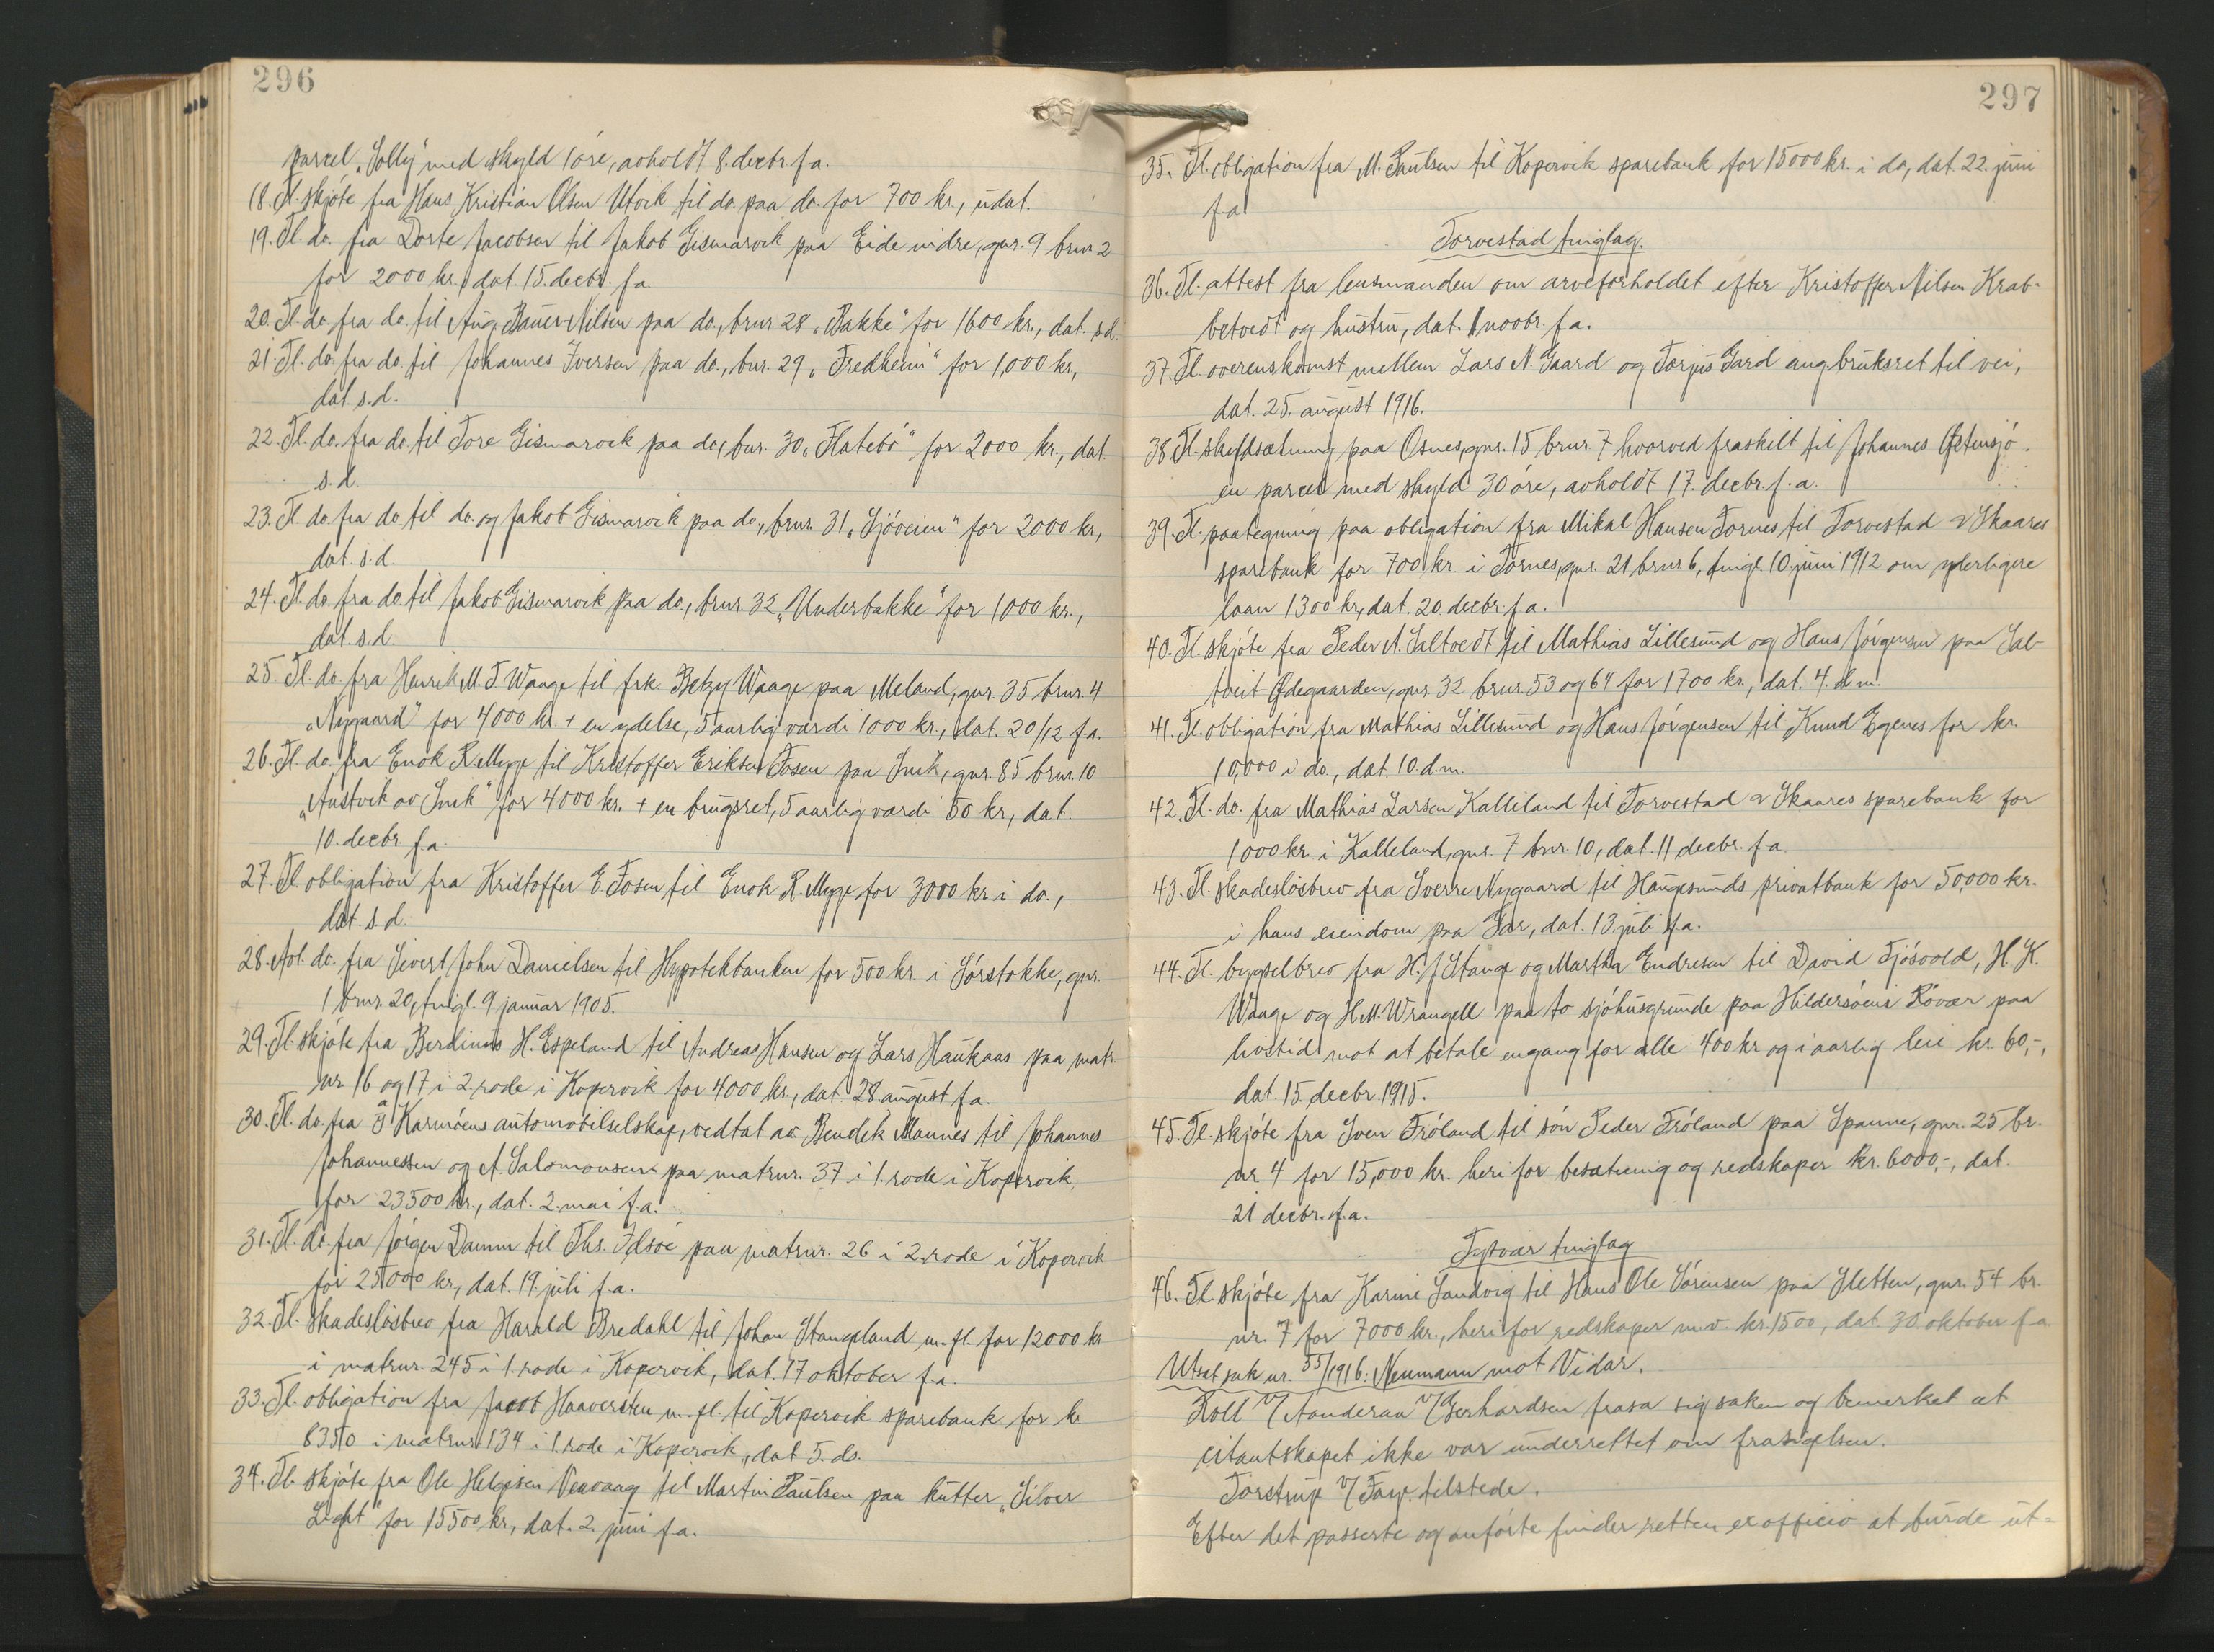 296
parcel „Solly" med skyld 1 øre, avholdt 8. decbr. f.a.
18. Tl. skjøte fra Hans Kristian Olsen Utvik til do. paa do. for 700 kr., udat.
19. Tl. do. fra Dorte Jacobsen til Jakob Gismarvik paa Eide indre, gnr. 9 brnr. 2
for 2000 kr., dat. 15. decbr. f.a.
20. Tl. do. fra do. til Aug. Bauer Nilsen paa do., brnr. 28 „Bakke" for 1600 kr., dat. s.d.
21. Tl. do. fra do. til Johannes Iversen paa do., bnr. 29 „Fredheim" for 1,000 kr,
dat. s.d.
22. Tl. do. fra do. til Tore Gismarvik paa do., bnr. 30 „Flatebø" for 2000 kr., dat.
s.d.
23. Tl. do. fra do. til do. og Jakob Gismarvik paa do., brnr. 31 „Sjøveien" for 2000 kr.,
dat. s.d.
24. Tl. do. fra do. til Jakob Gismarvik paa do., brnr. 32 „Underbakke" for 1000 kr.,
dat. s.d.
25. Tl. do. fra Henrik M. T. Waage til frk. Betzy Waage paa Meland, gnr. 35 brnr. 4
„Nygaard" for 4000 kr. + en ydelse, 5 aarlig værdi 1000 kr., dat. 20/12 f.a.
26. Tl. do. fra Enok R. Myge til Kristoffer Eriksen Fosen paa Snik, gnr. 85 brnr. 10
„Austvik av Snik" for 4000 kr. + en brugsret, 5 aarlig værdi 50 kr, dat.
10. decbr. f.a.
27. Tl. obligation fra Kristoffer E. Fosen til Enok R. Myge for 3000 kr. i do.,
dat. s.d.
28. Avl. do. fra Sivert John Danielsen til Hypotekbanken for 500 kr. i Sørstokke, gnr.
1 brnr. 20, tingl. 9 januar 1905.
29. Tl. skjøte fra Berdinus H. Espeland til Andreas Hansen og Lars Haukaas paa matr.
nr. 16 og 17 i 2. rode i Kopervik for 4000 kr., dat. 28. august f.a.
30. Tl. do. fra a/s Karmøens automobilselskap, vedtat av Bendik Mannes til Johannes
Johannessen og A. Salomonsen paa matrnr. 37 i 1. rode i Kopervik,
for 23500 kr., dat. 2. mai f.a.
31. Tl. do. fra Jørgen Damm til Ths. Idsøe paa matrnr. 26 i 2. rode i Kopervik
for 25000 kr., dat. 19. juli f.a.
32. Tl. skadesløsbrev fra Harald Bredahl til Johan Stangeland m.fl. for 12000 kr
i matrnr. 245 i 1. rode i Kopervik, dat. 17 oktober f.a.
33. Tl. obligation fra Jacob Haaversten m.fl. til Kopervik sparebank for kr
6350 i matrnr. 134 i 1. rode i Kopervik, dat 5. ds.
34. Tl. skjøte fra Ole Helgesen Veavaag til Martin Paulsen paa kutter „Silver
Light" for 15500 kr., dat. 2. juni f.a.
297
35. Tl. obligation fra M. Paulsen til Kopervik sparebank for 15000 kr. i do, dat. 22. juni
f.a
Torvestad tinglag.
36. Tl. attest fra lensmanden om arveforholdet efter Kristoffer Nilsen Krab-
betvedt og hustru, dat. 1 novbr. f.a.
37. Tl. overenskomst mellem Lars N. Gaard og Torjus Gard ang. bruksret til vei,
dat. 25. august 1916.
38. Tl. skyldsætning paa Osnes, gnr. 15 brnr. 7 hvorved fraskilt til Johannes Østensjø
en parcel med skyld 30 øre, avholdt 17. decbr. f.a.
39. Tl. paategning paa obligation fra Mikal Hansen Tornes til Torvestad & Skaares
sparebank for 700 kr. i Tornes, gnr. 21 brnr. 6, tingl. 10. juni 1912 om yderligere
laan 1300 kr, dat. 20. decbr. f.a.
40. Tl. skjøte fra Peder A. Saltvedt til Mathias Lillesund og Hans Jørgensen paa Sal-
tveit Ødegaarden, gnr. 32 brnr. 53 og 64 for 1700 kr., dat. 4. d.m.
41. Tl. obligation fra Mathias Lillesund og Hans Jørgensen til Knud Egenes for kr.
10,000 i do., dat. 10. d.m.
42. Tl. do. fra Mathias Larsen Kalleland til Torvestad & Skaares sparebank for
1000 kr. i Kalleland, gnr. 7 bnr. 10, dat. 11 decbr. f.a
43. Tl. skadesløsbrev fra Sverre Nygaard til Haugesunds privatbank for 50,000 kr.
i hans eiendom paa Gar, dat. 13 juli f.a.
44. Tl. bygselbrev fra H. J. Stange og Martha Endresen til David Fjøsvold, H. K.
Waage og H. M. Wrangell paa to sjøhusgrunde paa Hildersøens Røvær paa
livstid mot at betale engang for alle 400 kr. og i aarlig leie kr. 60,-,
dat. 15. decbr. 1915.
45. Tl. skjøte fra Sven Frøland til søn Peder Frøland paa Spanne, gnr. 25 br.
nr. 4 for 15,000 kr. heri for besætning og redskaper kr. 6000,-, dat.
21 decbr. f.a.
Tysvær tinglag
46. Tl. skjøte fra Karine Sandvig til Hans Ole Sørensen paa Sletten, gnr. 54 br.
nr. 7 for 7000 kr., heri for redskaper m.v. kr. 1500, dat. 30. oktober f.a.
Utsat sak nr. 55/1916: Neumann mot Vidar.
Roll v/ Aanderaa v/ Gerhardsen frasa sig saken og bemerket at
citantskapet ikke var underrettet om frasigelsen.
Torstrup v/ Fasp. tilstede.
Efter det passerte og anførte finder retten ex officio at burde ut=